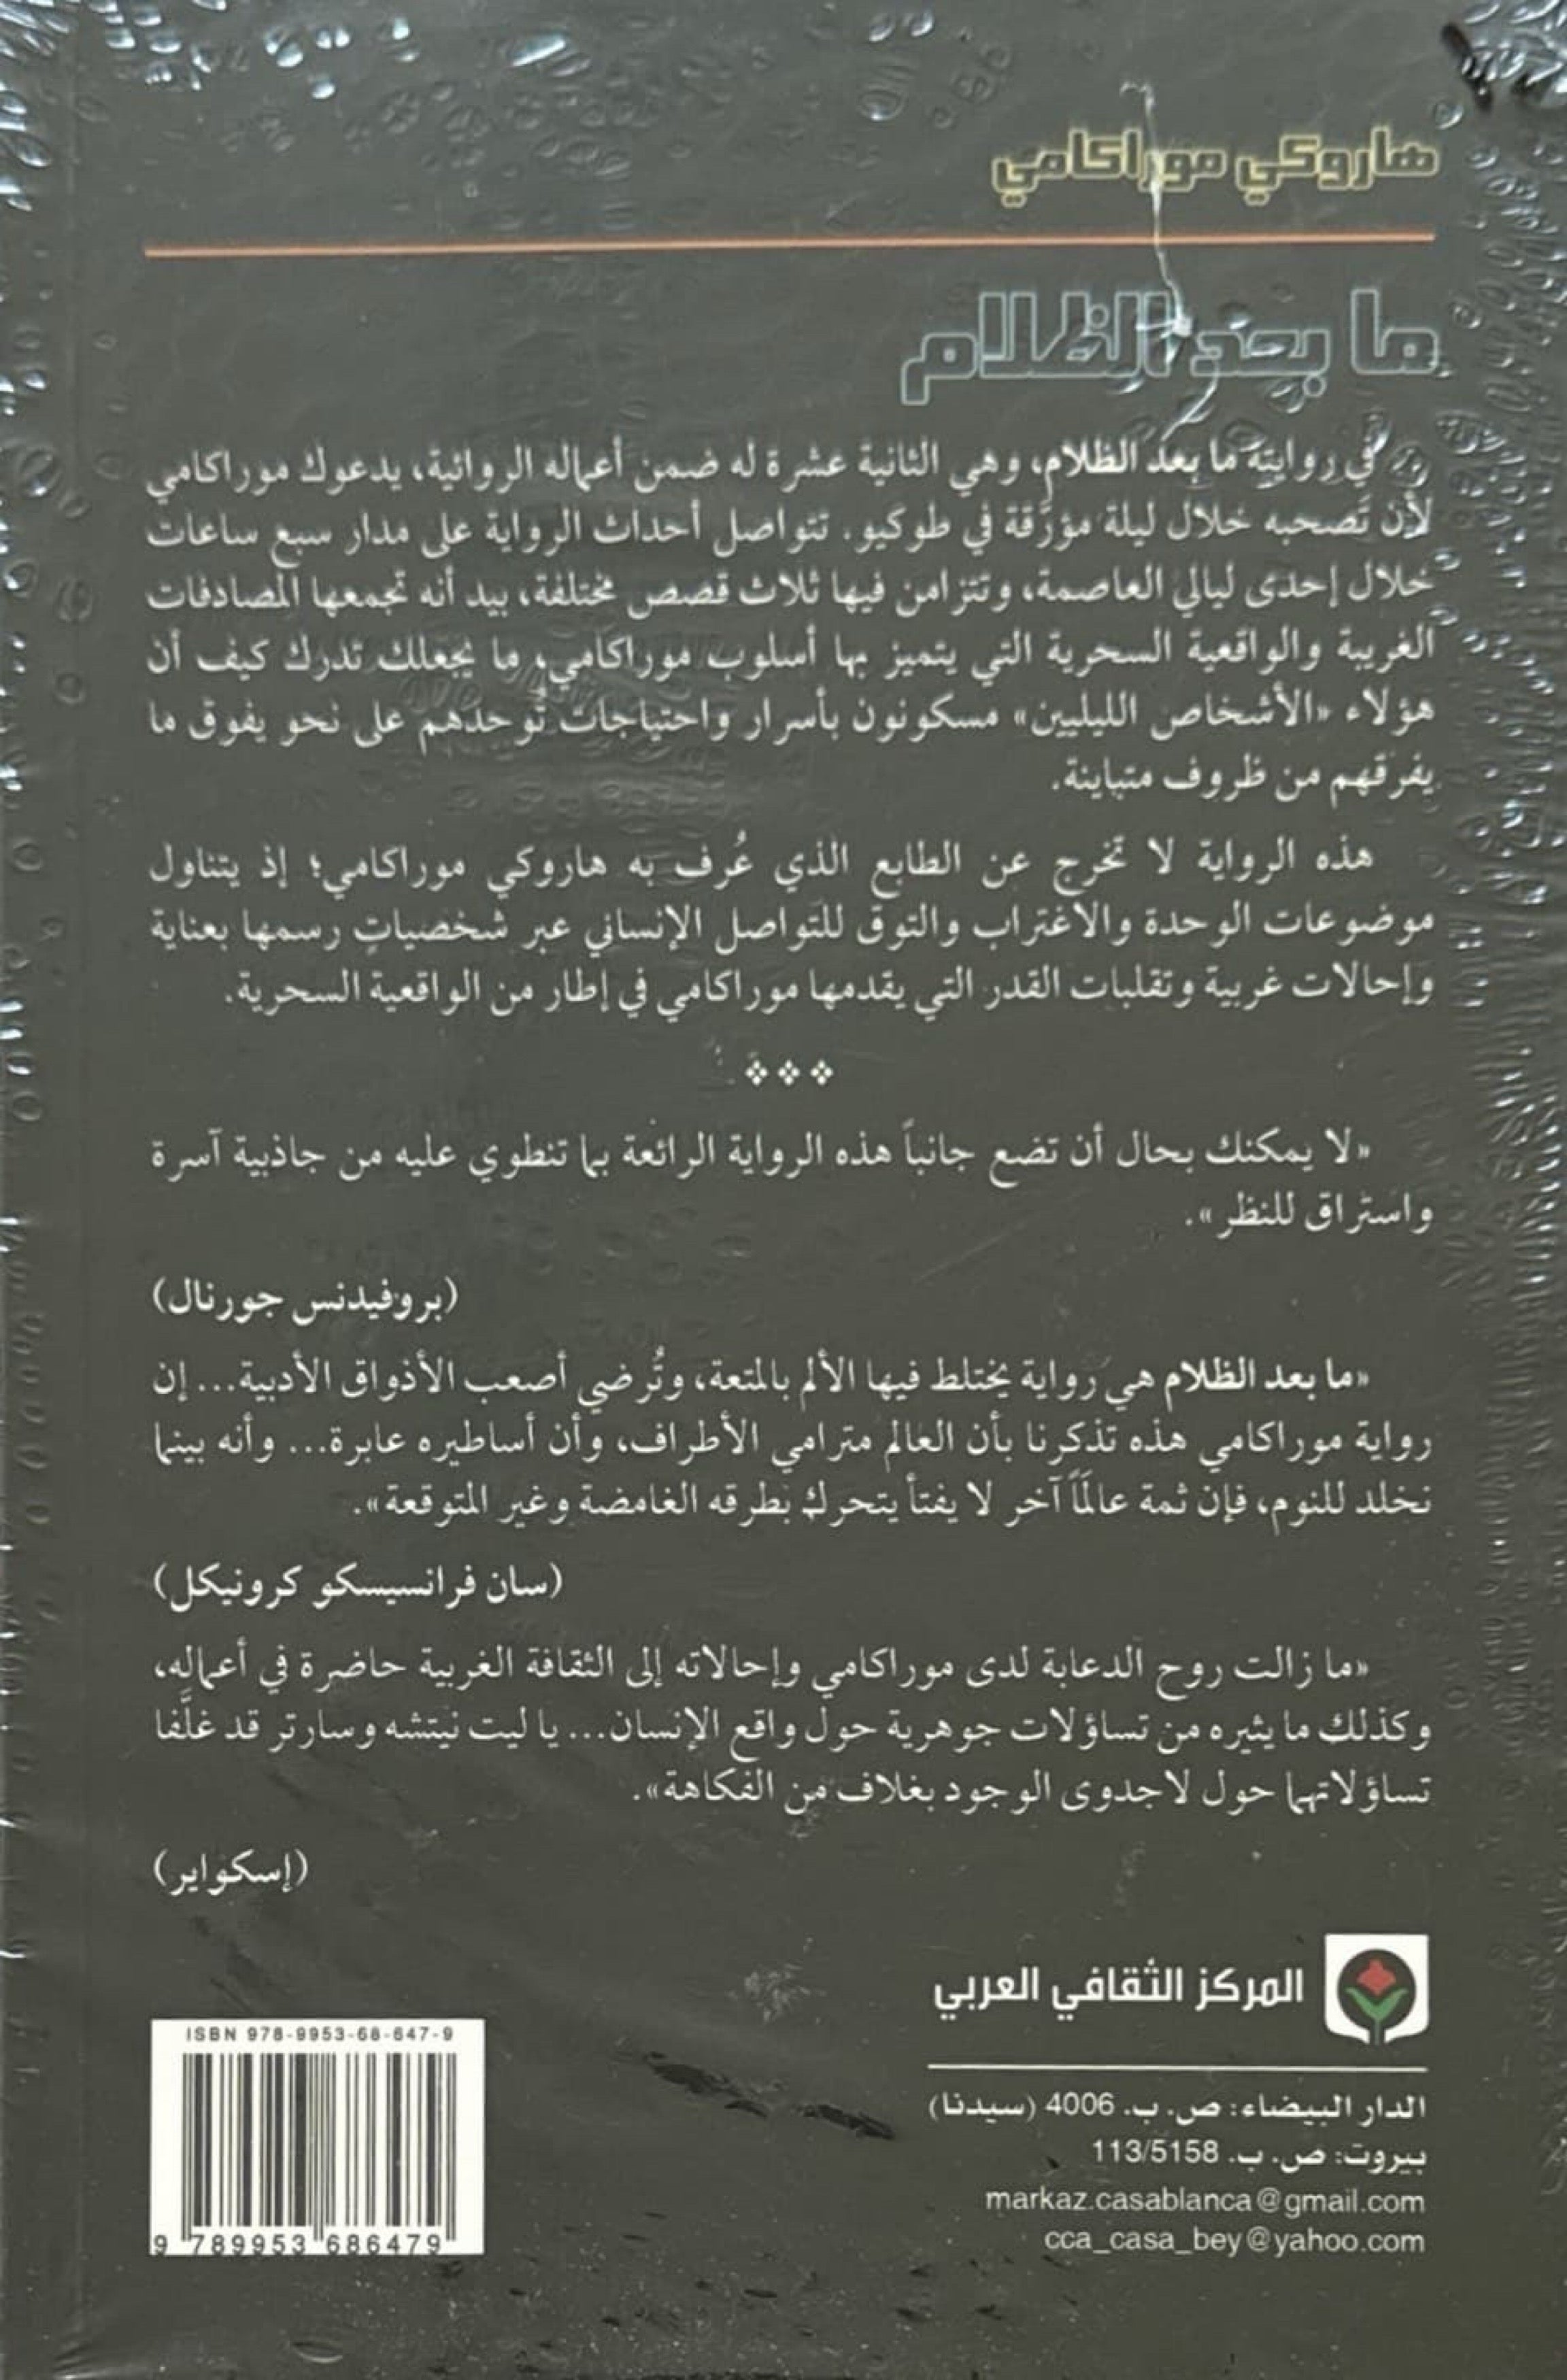 هاروكي موراكامي
ما بعد الظلام
في روايته ما بعد الظلام، وهي الثانية عشرة له ضمن أعماله الروائية، يدعوك موراكامي
لأن تَصحبه خلال ليلة مؤرِّقة في طوكيو. تتواصل أحداث الرواية على مدار سبع ساعات
خلال إحدى ليالي العاصمة، وتتزامن فيها ثلاث قصص مختلفة، بيد أنه تجمعها المصادفات
الغريبة والواقعية السحرية التي يتميز بها أسلوب موراكامي، ما يجعلك تدرك كيف أن
هؤلاء «الأشخاص الليليين» مسكونون بأسرار واحتياجات تُوحدهم على نحو يفوق ما
يفرقهم من ظروف متباينة.
هذه الرواية لا تخرج عن الطابع الذي عُرف به هاروكي موراكامي؛ إذ يتناول
موضوعات الوحدة والاغتراب والتوق للتواصل الإنساني عبر شخصياتٍ رسمها بعناية
وإحالات غربية وتقلبات القدر التي يقدمها موراكامي في إطار من الواقعية السحرية.
«لا يمكنك بحال أن تضع جانباً هذه الرواية الرائعة بما تنطوي عليه من جاذبية آسرة
واستراق للنظر».
(بروفيدنس جورنال)
«ما بعد الظلام هي رواية يختلط فيها الألم بالمتعة، وتُرضي أصعب الأذواق الأدبية... إن
رواية موراكامي هذه تذكرنا بأن العالم مترامي الأطراف، وأن أساطيره عابرة... وأنه بينما
نخلد للنوم، فإن ثمة عالمَاً آخر لا يفتأ يتحرك بطرقه الغامضة وغير المتوقعة».
(سان فرانسيسكو كرونيكل)
«ما زالت روح الدعابة لدى موراكامي وإحالاته إلى الثقافة الغربية حاضرة في أعماله،
وكذلك ما يثيره من تساؤلات جوهرية حول واقع الإنسان... يا ليت نيتشه وسارتر قد غلَّفا
تساؤلاتهما حول لاجدوى الوجود بغلاف من الفكاهة».
(إسكواير)
المركز الثقافي العربي
الدار البيضاء: ص. ب. 4006 (سيدنا)
بيروت: ص. ب. 113/5158
markaz.casablanca@gmail.com
cca_casa_bey@yahoo.com
ISBN 978-9953-68-647-9
9 789953 686479